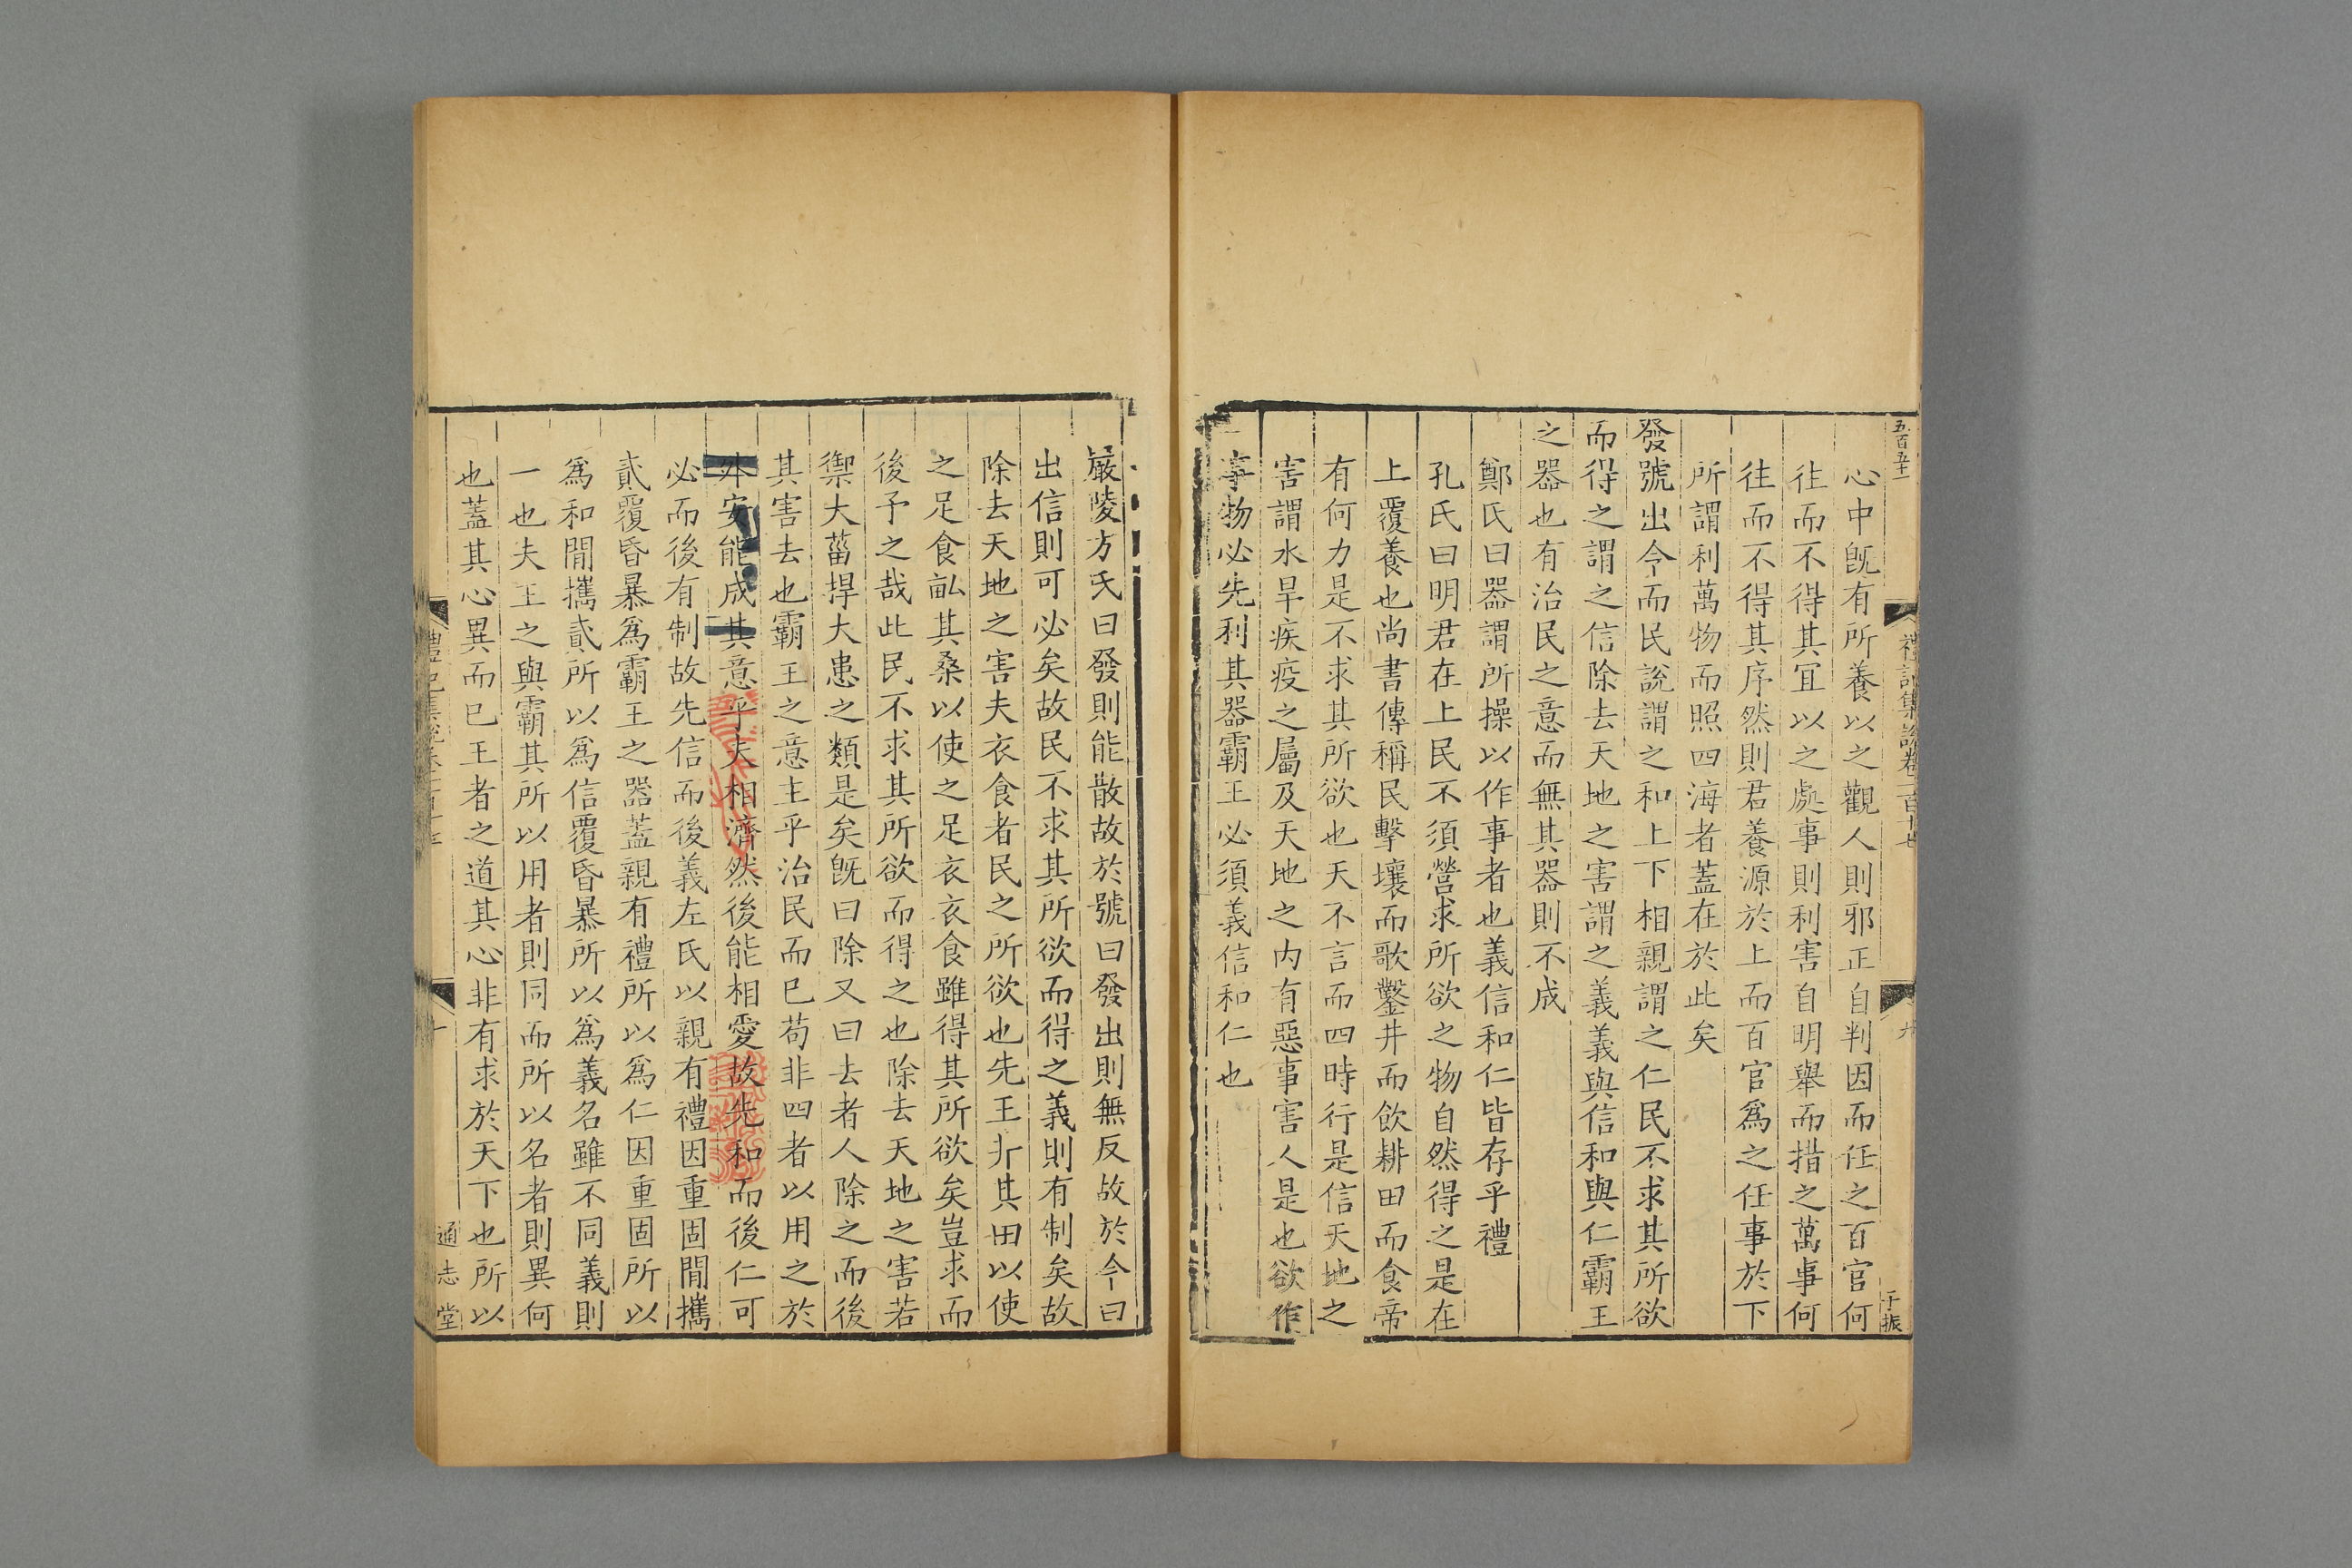 五百五十一
禮記集說卷一百十七
九
于振
心中旣有所養以之觀人則邪正自判因而任之百官何
徃而不得其宜以之處事則利害自明舉而措之萬事何
徃而不得其序然則君養源於上而百官爲之任事於下
所謂利萬物而照四海者蓋在於此矣
發號出令而民說謂之和上下相親謂之仁民不求其所欲
而得之謂之信除去天地之害謂之義義與信和與仁霸王
之器也有治民之意而無其器則不成
鄭氏曰器謂所操以作事者也義信和仁皆存乎禮
孔氏曰明君在上民不須營求所欲之物自然得之是在
上覆養也尚書傳稱民擊壤而歌鑿井而飲耕田而食帝
有何力是不求其所欲也天不言而四時行是信天地之
害謂水旱疾疫之屬及天地之內有惡事害人是也欲作
事物必先利其器霸王必須義信和仁也
嚴陵方氏曰發則能散故於號曰發出則無反故於令曰
出信則可必矣故民不求其所欲而得之義則有制矣故
除去天地之害夫衣食者民之所欲也先王井其田以使
之足食畝其桑以使之足衣衣食雖得其所欲矣豈求而
後予之哉此民不求其所欲而得之也除去天地之害若
禦大菑捍大患之類是矣旣曰除又曰去者人除之而後
其害去也霸王之意主乎治民而已苟非四者以用之於
外安能成其意乎夫相濟然後能相愛故先和而後仁可
必而後有制故先信而後義左氏以親有禮因重固閒攜
貳覆昏暴爲霸王之器蓋親有禮所以爲仁因重固所以
爲和閒攜貳所以爲信覆昏暴所以爲義名雖不同義則
一也夫王之與霸其所以用者則同而所以名者則異何
也蓋其心異而已王者之道其心非有求於天下也所以
禮記集說卷一百十七
十
通志堂